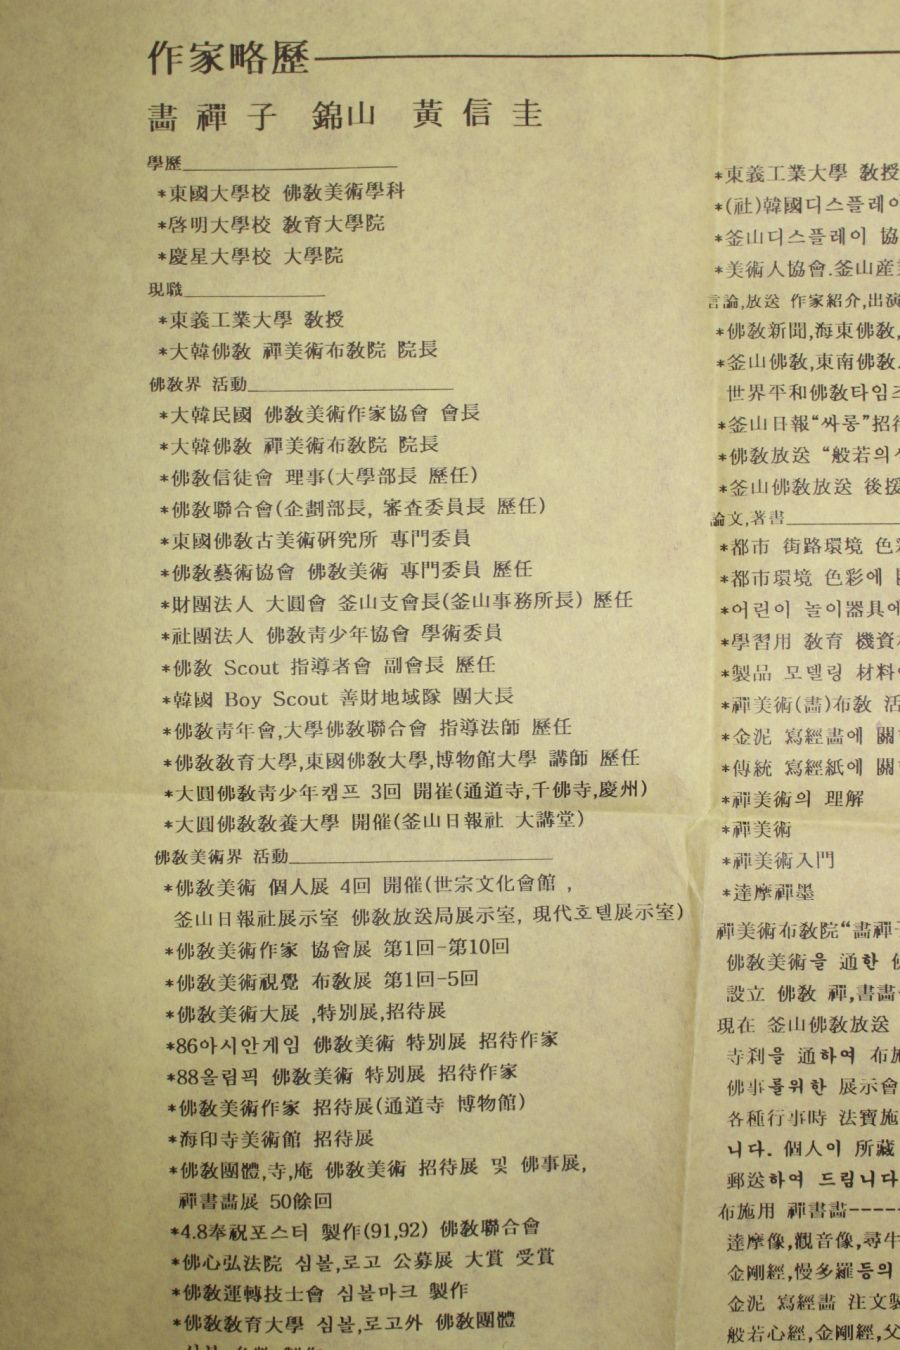 作家略歷
畵禪子 錦山 黃信圭
學歷
*東國大學校 佛敎美術學科
*啓明大學校 敎育大學院
*慶星大學校 大學院
現職
*東義工業大學 敎授
*大韓佛敎 禪美術布敎院 院長
佛敎界 活動
*大韓民國 佛敎美術作家協會 會長
*大韓佛敎 禪美術布敎院 院長
*佛敎信徒會 理事(大學部長 歷任)
*佛敎聯合會(企劃部長, 審査委員長 歷任)
*東國佛敎古美術硏究所 專門委員
*佛敎藝術協會 佛敎美術 專門委員 歷任
*財團法人 大圓會 釜山支會長(釜山事務所長) 歷任
*社團法人 佛敎靑少年協會 學術委員
*佛敎 Scout 指導者會 副會長 歷任
*韓國 Boy Scout 善財地域隊 團大長
*佛敎靑年會,大學佛敎聯合會 指導法師 歷任
*佛敎敎育大學,東國佛敎大學,博物館大學 講師 歷任
*大圓佛敎靑少年캠프 3回 開崔(通道寺,千佛寺,慶州)
*大圓佛敎敎養大學 開催(釜山日報社 大講堂)
佛敎美術界 活動
*佛敎美術 個人展 4回 開催(世宗文化會館 ,
釜山日報社展示室 佛敎放送局展示室, 現代호텔展示室)
*佛敎美術作家 協會展 第1回-第10回
*佛敎美術視覺 布敎展 第1回-5回
*佛敎美術大展 ,特別展,招待展
*86아시안게임 佛敎美術 特別展 招待作家
*88올림픽 佛敎美術 特別展 招待作家
*佛敎美術作家 招待展(通道寺 博物館)
*海印寺美術館 招待展
*佛敎團體,寺,庵 佛敎美術 招待展 및 佛事展,
禪書畵展 50餘回
*4.8奉祝포스터 製作(91,92) 佛敎聯合會
*佛心弘法院 심볼,로고 公募展 大賞 受賞
*佛敎運轉技士會 심볼마크 製作
*佛敎敎育大學 심볼,로고外 佛敎團體
*東義工業大學 敎授
*(社)韓國디스플레이
*釜山디스플레이 協
*美術人協會.釜山産
言論,放送 作家紹介,出演
*佛敎新聞,海東佛敎,
*釜山佛敎,東南佛敎
世界平和佛敎타임즈
*釜山日報“싸롱”招待
*佛敎放送 “般若의
*釜山佛敎放送 後援
論文,著書
*都市 街路環境 色彩
*都市環境 色彩에
*어린이 놀이器具에
*學習用 敎育 機資材
*製品 모델링 材料
*禪美術(畵)布敎 活
*金泥 寫經畵에 關
*傳統 寫經紙에 關
*禪美術의 理解
*禪美術
*禪美術入門
*達摩禪墨
禪美術布敎院“畵禪子
佛敎美術을 通한 佛
設立 佛敎 禪,書畵
現在 釜山佛敎放送
寺刹을 通하여 布施
佛事를위한 展示會
各種行事時 法寶施
니다. 個人이 所藏
郵送하여 드립니다
布施用 禪書畵----
達摩像,觀音像,尋牛
金剛經,慢多羅등의
金泥 寫經畵 注文製
般若心經,金剛經,父